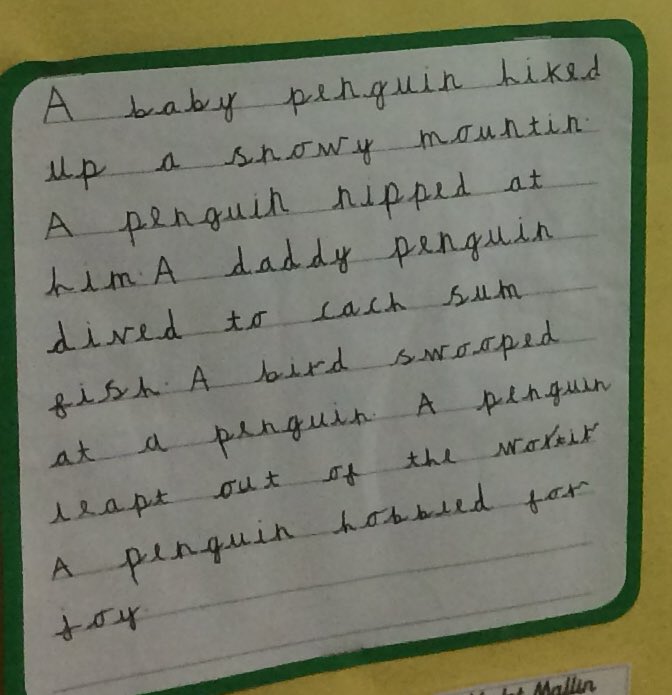 A baby penguin hiked
up a snowy mountin.
A penguin nipped at
him. A daddy penguin
dived to cach sum
fish. A bird swooped
at a penguin. A penguin
leapt out of the
A penguin hobbled for
joy.
Mallin